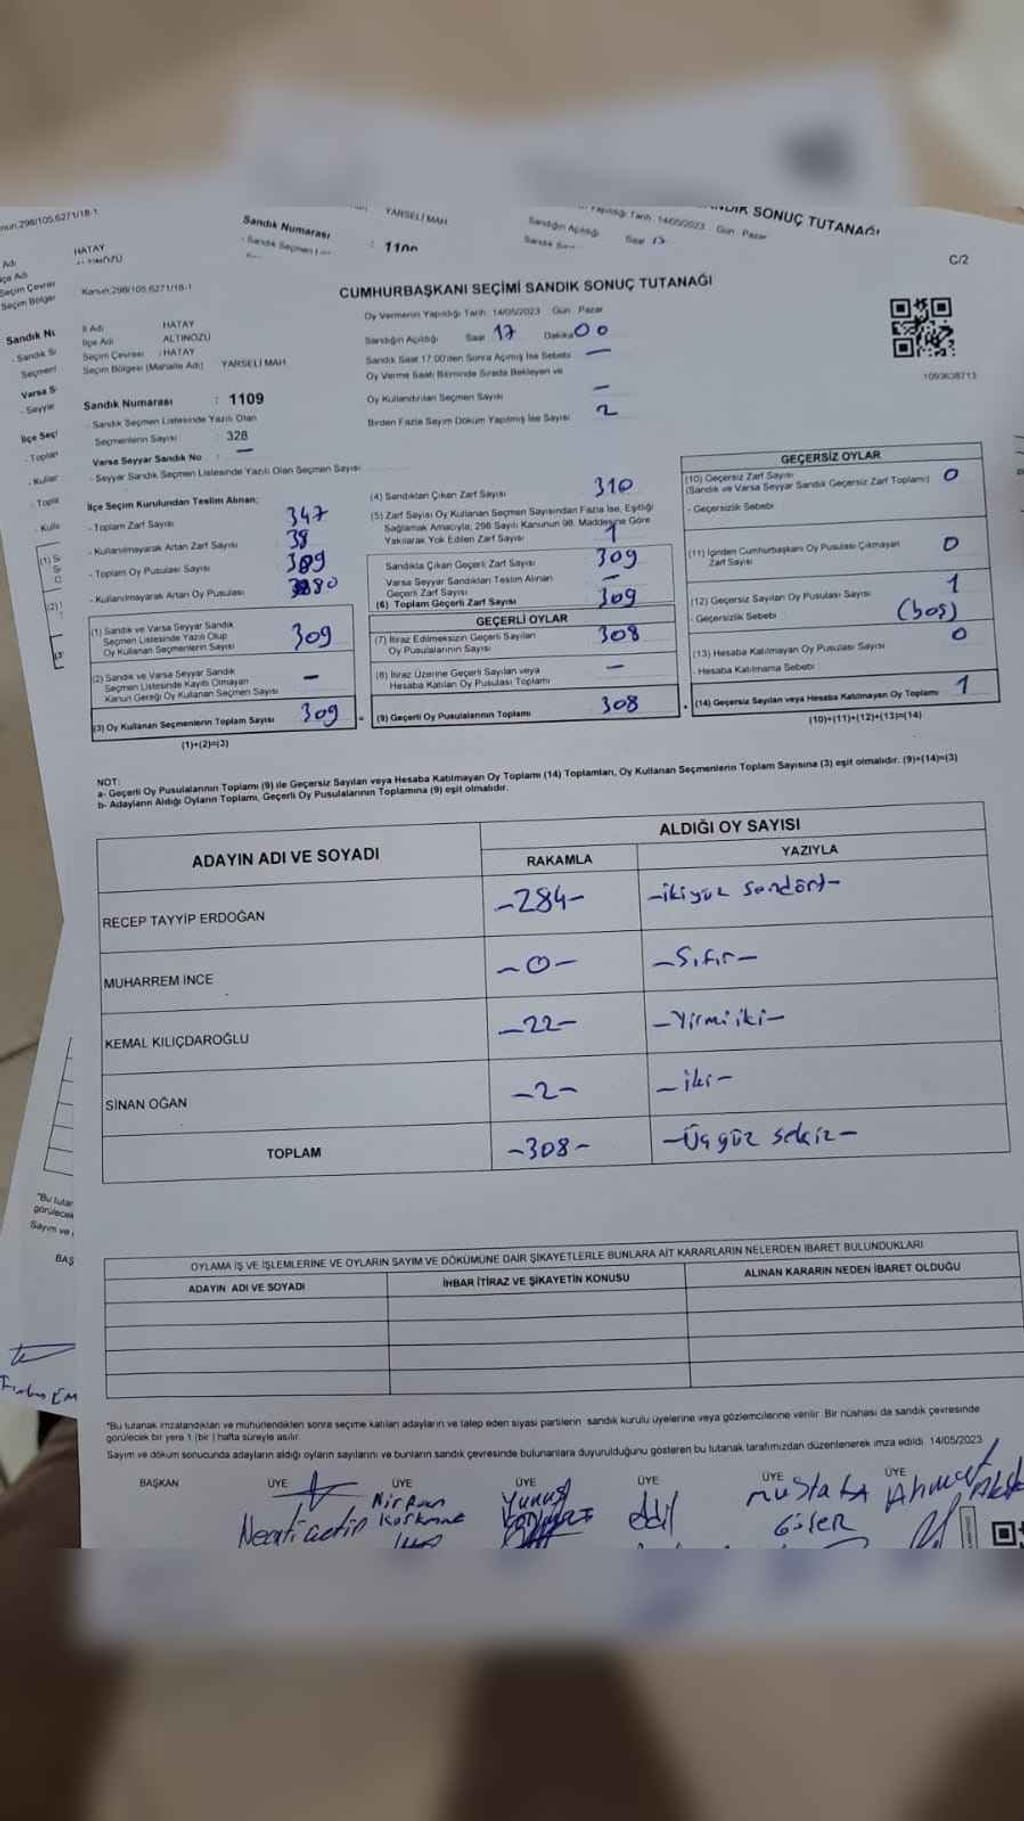 YARSELİ MAH
SANDIK SONUÇ TUTANAĞI
Sandık Numarası
1109
HATAY
C/2
CUMHURBAŞKANI SEÇİMİ SANDIK SONUÇ TUTANAĞI
Kanun:298/105,6271/18-1
Oy Vermenin Yapıldığı Tarih: 14/05/2023 Gün: Pazar
İl Adı : HATAY
İlçe Adı : ALTINÖZÜ
Seçim Çevresi : HATAY
Seçim Bölgesi (Mahalle Adı) : YARSELİ MAH
Sandığın Açıldığı Saat 17 Dakika 00
Sandık Saat 17:00'den Sonra Açılmış İse Sebebi —
Oy Verme Saati Bitiminde Sırada Bekleyen ve
Oy Kullandırılan Seçmen Sayısı —
Birden Fazla Sayım Döküm Yapılmış İse Sayısı 2
1093638713
Sandık Numarası : 1109
- Sandık Seçmen Listesinde Yazılı Olan
Seçmenlerin Sayısı : 328
Varsa Seyyar Sandık No : —
- Seyyar Sandık Seçmen Listesinde Yazılı Olan Seçmen Sayısı
İlçe Seçim Kurulundan Teslim Alınan;
- Toplam Zarf Sayısı 347
- Kullanılmayarak Artan Zarf Sayısı 38
- Toplam Oy Pusulası Sayısı 389
- Kullanılmayarak Artan Oy Pusulası 80
(1) Sandık ve Varsa Seyyar Sandık
Seçmen Listesinde Yazılı Olup
Oy Kullanan Seçmenlerin Sayısı 309
(2) Sandık ve Varsa Seyyar Sandık
Seçmen Listesinde Kayıtlı Olmayan
Kanun Gereği Oy Kullanan Seçmen Sayısı -
(3) Oy Kullanan Seçmenlerin Toplam Sayısı 309
(1)+(2)=(3)
(4) Sandıktan Çıkan Zarf Sayısı 310
(5) Zarf Sayısı Oy Kullanan Seçmen Sayısından Fazla İse, Eşitliği
Sağlamak Amacıyla; 298 Sayılı Kanunun 98. Maddesine Göre
Yakılarak Yok Edilen Zarf Sayısı 1
Sandıkta Çıkan Geçerli Zarf Sayısı 309
Varsa Seyyar Sandıktan Teslim Alınan
Geçerli Zarf Sayısı -
(6) Toplam Geçerli Zarf Sayısı 309
GEÇERLİ OYLAR
(7) İtiraz Edilmeksizin Geçerli Sayılan
Oy Pusulalarının Sayısı 308
(8) İtiraz Üzerine Geçerli Sayılan veya
Hesaba Katılan Oy Pusulası Toplamı —
(9) Geçerli Oy Pusulalarının Toplamı 308
GEÇERSİZ OYLAR
(10) Geçersiz Zarf Sayısı
(Sandık ve Varsa Seyyar Sandık Geçersiz Zarf Toplamı) 0
- Geçersizlik Sebebi
(11) İçinden Cumhurbaşkanı Oy Pusulası Çıkmayan
Zarf Sayısı 0
(12) Geçersiz Sayılan Oy Pusulası Sayısı 1
- Geçersizlik Sebebi (boş)
(13) Hesaba Katılmayan Oy Pusulası Sayısı 0
- Hesaba Katılmama Sebebi
(14) Geçersiz Sayılan veya Hesaba Katılmayan Oy Toplamı 1
(10)+(11)+(12)+(13)=(14)
NOT:
a- Geçerli Oy Pusulalarının Toplamı (9) ile Geçersiz Sayılan veya Hesaba Katılmayan Oy Toplamı (14) Toplamları, Oy Kullanan Seçmenlerin Toplam Sayısına (3) eşit olmalıdır. (9)+(14)=(3)
b- Adayların Aldığı Oyların Toplamı, Geçerli Oy Pusulalarının Toplamına (9) eşit olmalıdır.
ADAYIN ADI VE SOYADI
ALDIĞI OY SAYISI
RAKAMLA YAZIYLA
RECEP TAYYİP ERDOĞAN -284- -ikiyüz sendört-
MUHARREM İNCE -0- -Sıfır-
KEMAL KILIÇDAROĞLU -22- -Yirmiiki-
SİNAN OĞAN -2- -iki-
TOPLAM -308- -Üçyüz sekiz-
OYLAMA İŞ VE İŞLEMLERİNE VE OYLARIN SAYIM VE DÖKÜMÜNE DAİR ŞİKAYETLERLE BUNLARA AİT KARARLARIN NELERDEN İBARET BULUNDUKLARI
ADAYIN ADI VE SOYADI İHBAR İTİRAZ VE ŞİKAYETİN KONUSU ALINAN KARARIN NEDEN İBARET OLDUĞU
"Bu tutanak imzalandıktan ve mühürlendikten sonra seçime katılan adayların ve talep eden siyasi partilerin sandık kurulu üyelerine veya gözlemcilerine verilir. Bir nüshası da sandık çevresinde
görülecek bir yere 1 (bir) hafta süreyle asılır.
Sayım ve döküm sonucunda adayların aldığı oyların sayılarını ve bunların sandık çevresinde bulunanlara duyurulduğunu gösteren bu tutanak tarafımızdan düzenlenerek imza edildi. 14/05/2023
BAŞKAN ÜYE ÜYE ÜYE ÜYE ÜYE ÜYE
Necati çetin Yunus Adil Mustafa Güler Ahmet